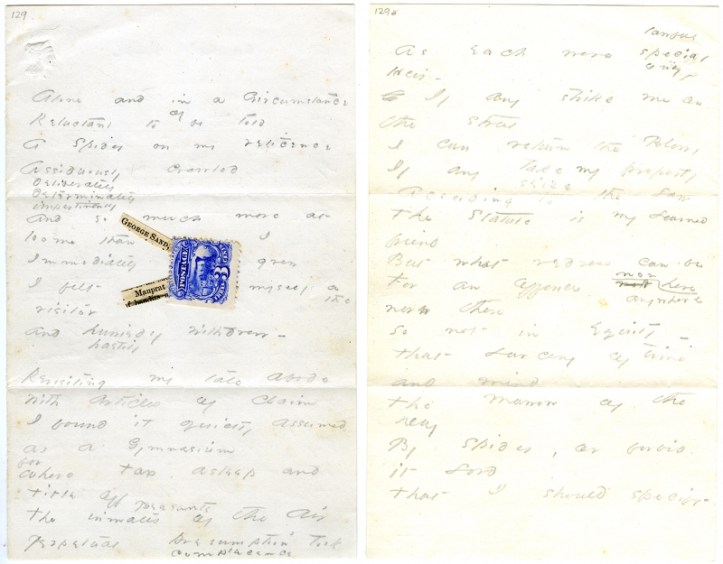 129
Alone and in a Circumstance
Reluctant to be told
of
A Spider on my reticence
Assiduously crawled
deliberately
determinately
impertinently
And so much more at
home than I
Immediately grew
I felt myself a
the
visitor
And hurriedly withdrew -
hastily
Revisiting my late abode
with articles of claim
I found it quietly assumed
as a Gymnasium
for
where tax asleep and
title off
peasants
The inmates of the Air
Perpetual presumption took
complacence
GEORGE SAND
Mauprat
POSTAGE
3
129a
lawful
As each were special
only
Heir -
If any strike me on
the street
I can return the Blow,
If any take my property
seize
According to the Law
The Statute is my Learned
friend
But what redress can be
nor
For an offence not here
anywhere
nor there
So not in Equity -
That Larceny of time
and mind
The marrow of the
Day
By spider, or forbid
it Lord
That I should specify -